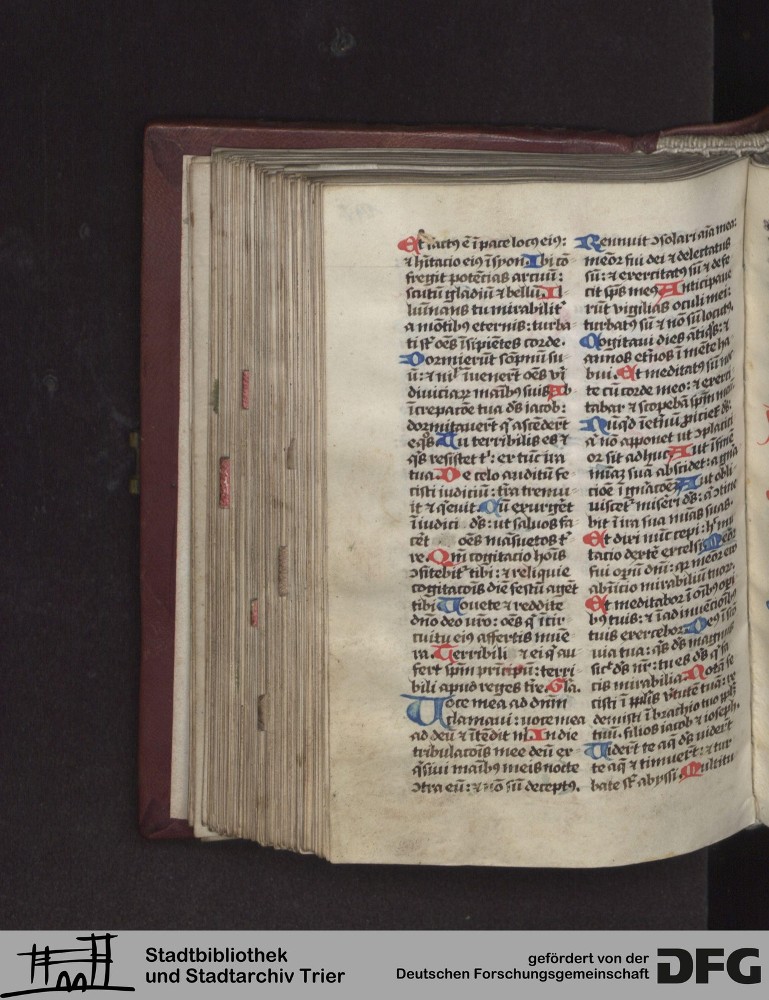 Et factꝰ ē ī pace locꝰ eiꝰ:
⁊ hītacio eiꝰ ī syon. Ibi cō
fregit potēcias arcuū:
scutū gladiū ⁊ bellū. Il
luīnans tu mirabilit᷑
a mōtibꝰ eternis: turba
ti sūt oēs īsipiētes corde.
Dormierūt sōpnū su
ū: ⁊ nil īuenerūt oēs viri
diuiciaꝝ maībꝰ suis. Ab
īcrepacōe tua dꝰ iacob:
dormitauerūt q̄ ascēderūt
eqꝰs. Tu terribilis es ⁊
q̄s resistet t': ex tūc ira
tua. De celo auditū fe
cisti iudiciū: t̄ra tremu
it ⁊ q̄euit. Cū exurgēt
ī iudici dꝰ: ut saluos fa
cēt oēs māsuetos t̄
re. Qm̄ cogitacio hoīs
ꝯfitebit᷑ tibi: ⁊ reliquie
cogitacoīs diē festū agēt
tibi. Uouete ⁊ reddite
dn̄o deo vr̄o: oēs q̄ ī cir
cuitu eiꝰ affertis mune
ra. Terribili ⁊ ei q̄ au
fert spm̄ prīcipū: terri
bili apud reges t̄re. Gla.
Uoce mea ad dn̄m
clamaui: uoce mea
ad deū ⁊ ītēdit m̄. In die
tribulacoīs mee deū ex
q̄siui maībꝰ meis nocte
ꝯtra eū: ⁊ nō sū deceptꝰ.
Rennuit ꝯsolari aīa mea:
meōr fui dei ⁊ delectatus
sū: ⁊ exercitatꝰ sū ⁊ defe
cit sp̄s meꝰ. Anticipaue
rūt vigilias oculi mei:
turbatꝰ sū ⁊ nō sū locutꝰ.
Cogitaui dies ātiq̄s: ⁊
annos et̄nos ī mēte ha
bui. Et meditatꝰ sū noc
te cū corde meo: ⁊ exerci
tabar ⁊ scopebā spm̄ meū.
Nūqd ī et̄nū ꝓiciet dꝰ:
a' nō apponet ut ꝯplaciti
or sit adhuc. Aut ī finē
mīaꝫ suā abscidet: a gn̄a
cioē ī gn̄acoēꝫ. Aut obli
uiscet᷑ misēri dꝰ: a' ꝯtine
bit ī ira sua mīas suas.
Et dixi nūc cepi: hꝰ mu
tacio dext̄e excelsi. Meōr
fui opū dn̄i: qꝛ meōr ero
ab īicio mirabiliū tuoꝝ.
Et meditabor ī oībꝰ opi
bꝰ tuis: ⁊ ī adinuēcioībꝰ
tuis exercebor. Deꝰ ī sc̄o
uia tua: q̄s dꝰ magnus
sic̄ dꝰ nr̄: tu es dꝰ q̄ fa
cis mirabilia. Notā fe
cisti ī ppl̄is v̄tutē tuā: re
demisti ī brachio tuo ppl̄m
tuū. filios iacob ⁊ ioseph.
Uiderūt te aq̄ dꝰ uiderūt
te aq̄ ⁊ timuerūt: ⁊ tur
bate sūt abyssi. Multitu
Stadtbibliothek
und Stadtarchiv Trier
gefördert von der
Deutschen Forschungsgemeinschaft
DFG